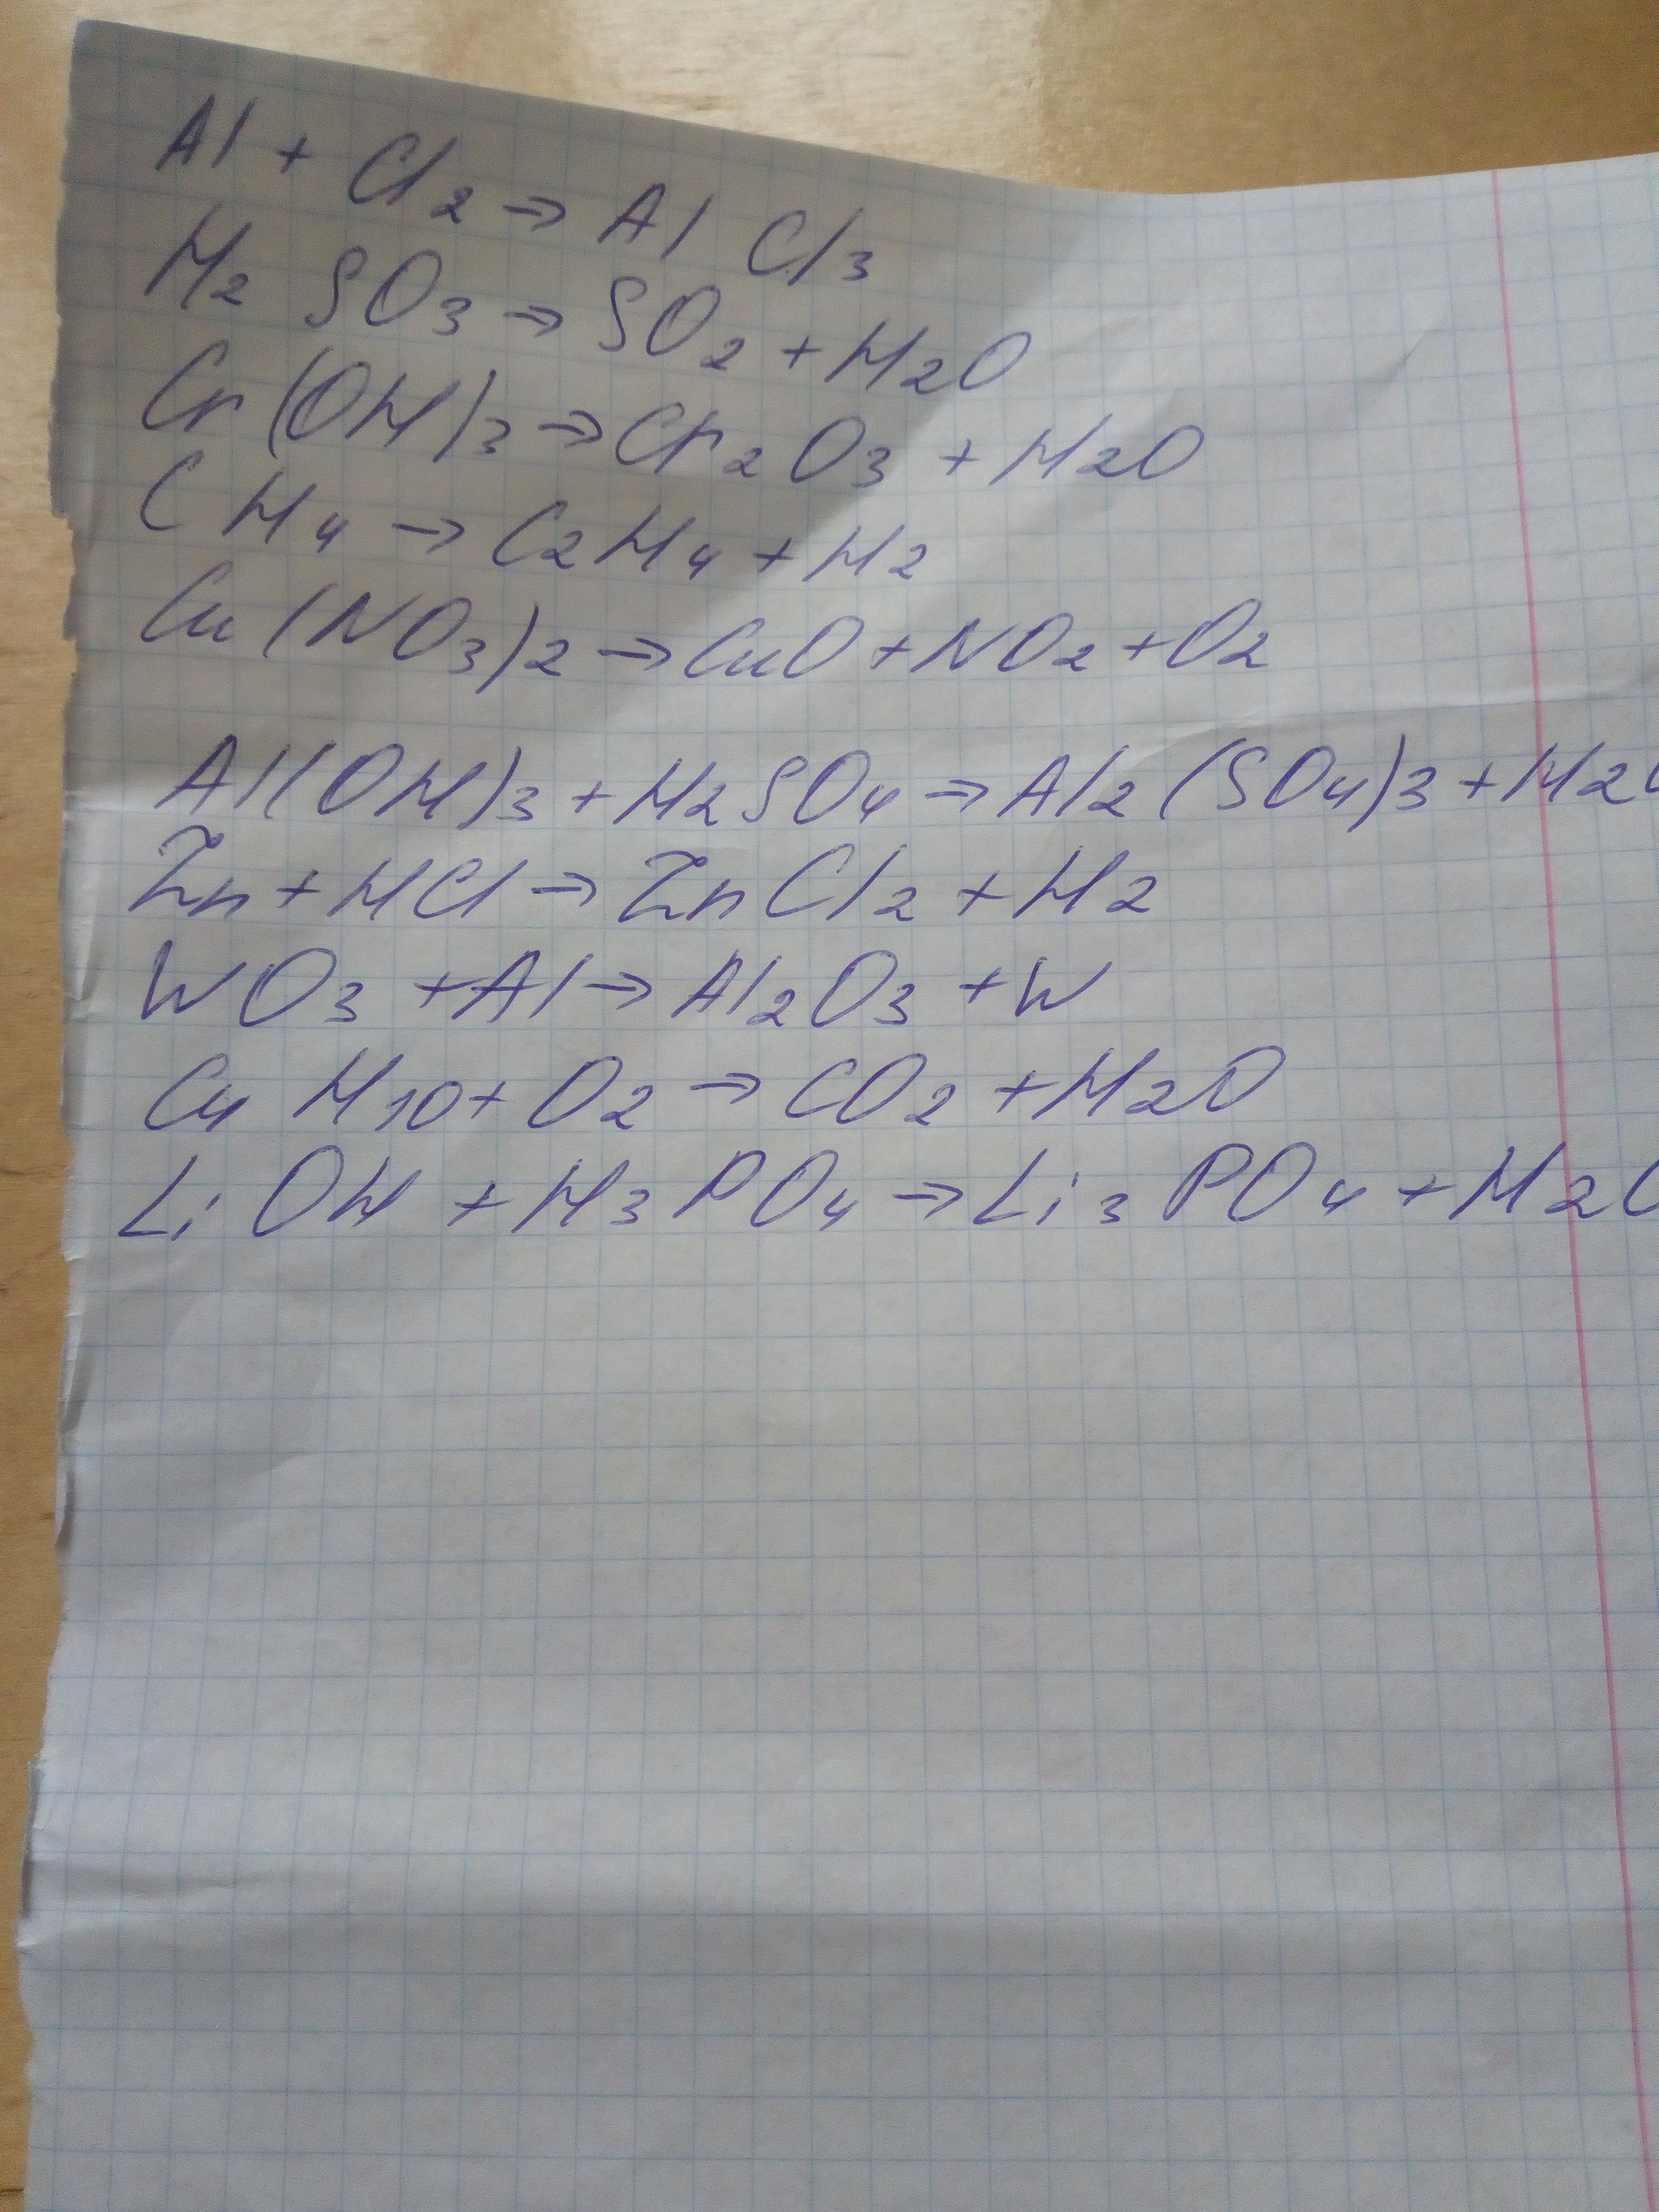 Al + Cl2 → AlCl3
H2SO3 → SO2 + H2O
Cr(OH)3 → Cr2O3 + H2O
CH4 → C2H4 + H2
Cu(NO3)2 → CuO + NO2 + O2
Al(OH)3 + H2SO4 → Al2(SO4)3 + H2O
Zn + HCl → ZnCl2 + H2
WO3 + Al → Al2O3 + W
C4H10 + O2 → CO2 + H2O
LiOH + H3PO4 → Li3PO4 + H2O